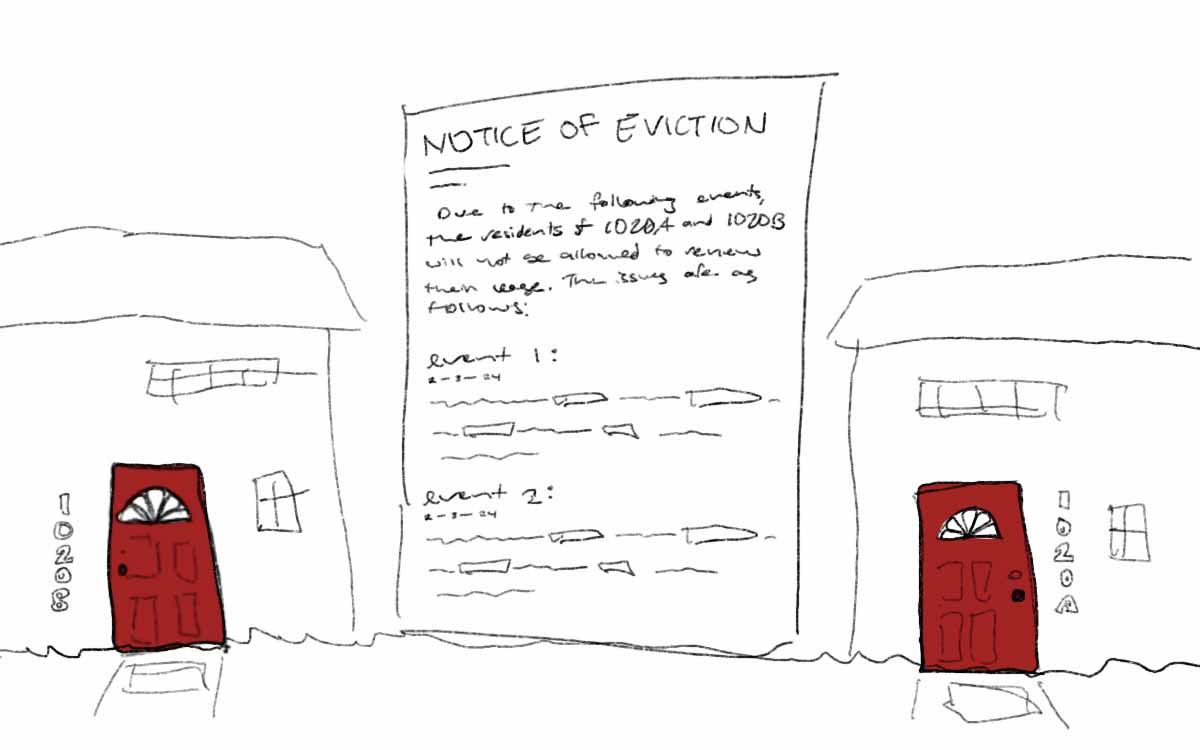 NOTICE OF EVICTION
Due to the following events,
the residents of 1020A and 1020B
will not be allowed to renew
their lease. The issues are as
follows:
event 1:
2-3-24
event 2:
2-3-24
1020B
1020A